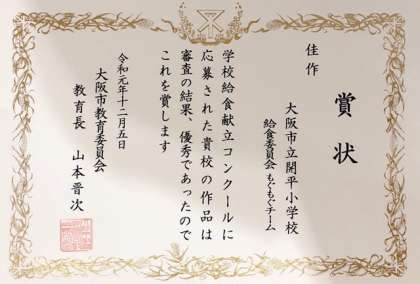 賞状
佳作
大阪市立開平小学校
給食委員会 もぐもぐチーム
学校給食献立コンクールに
応募された貴校の作品は
審査の結果、優秀であったので
これを賞します
令和元年十二月五日
大阪市教育委員会
教育長 山本晋次